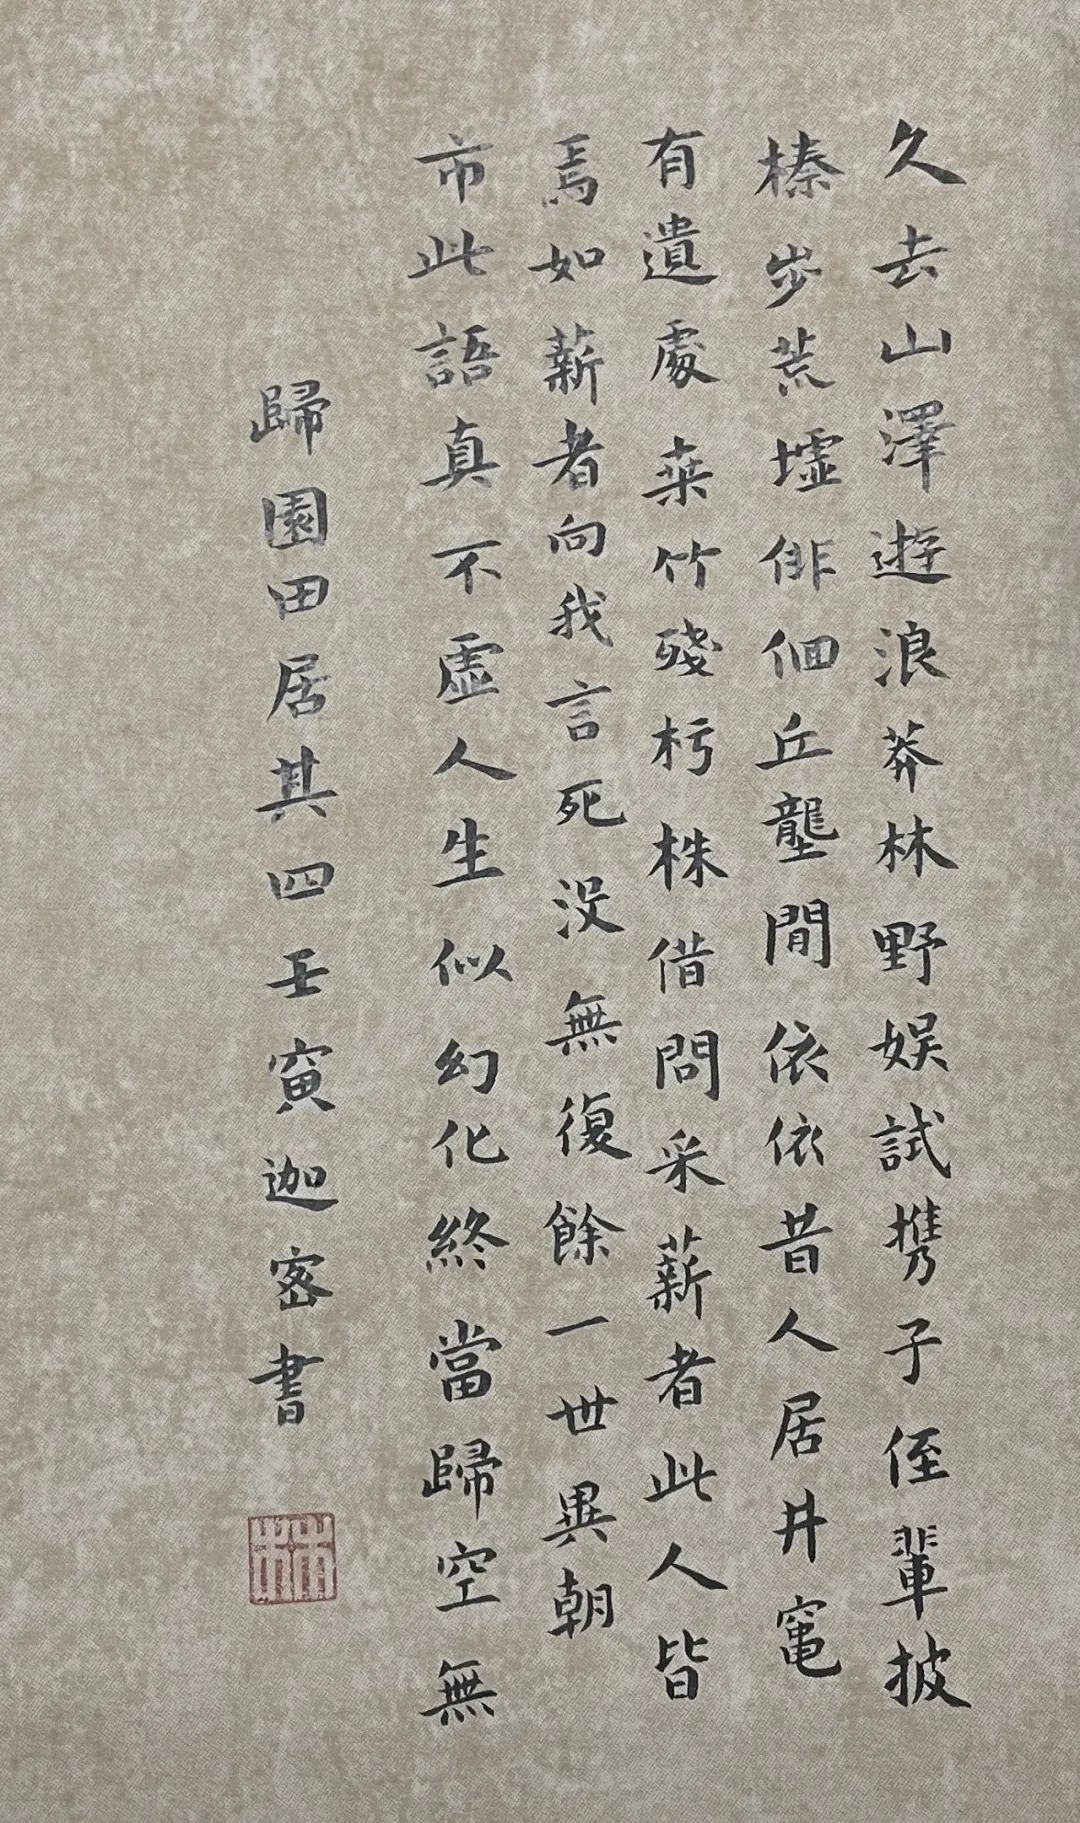 久去山澤遊浪莽林野娛試携子侄輩披
榛步荒墟俳佪丘壟間依依昔人居井竈
有遺處桒竹殘杇株借問采薪者此人皆
焉如薪者向我言死没無復餘一世異朝
市此語真不虛人生似幻化終當歸空無
歸園田居其四壬寅迦密書